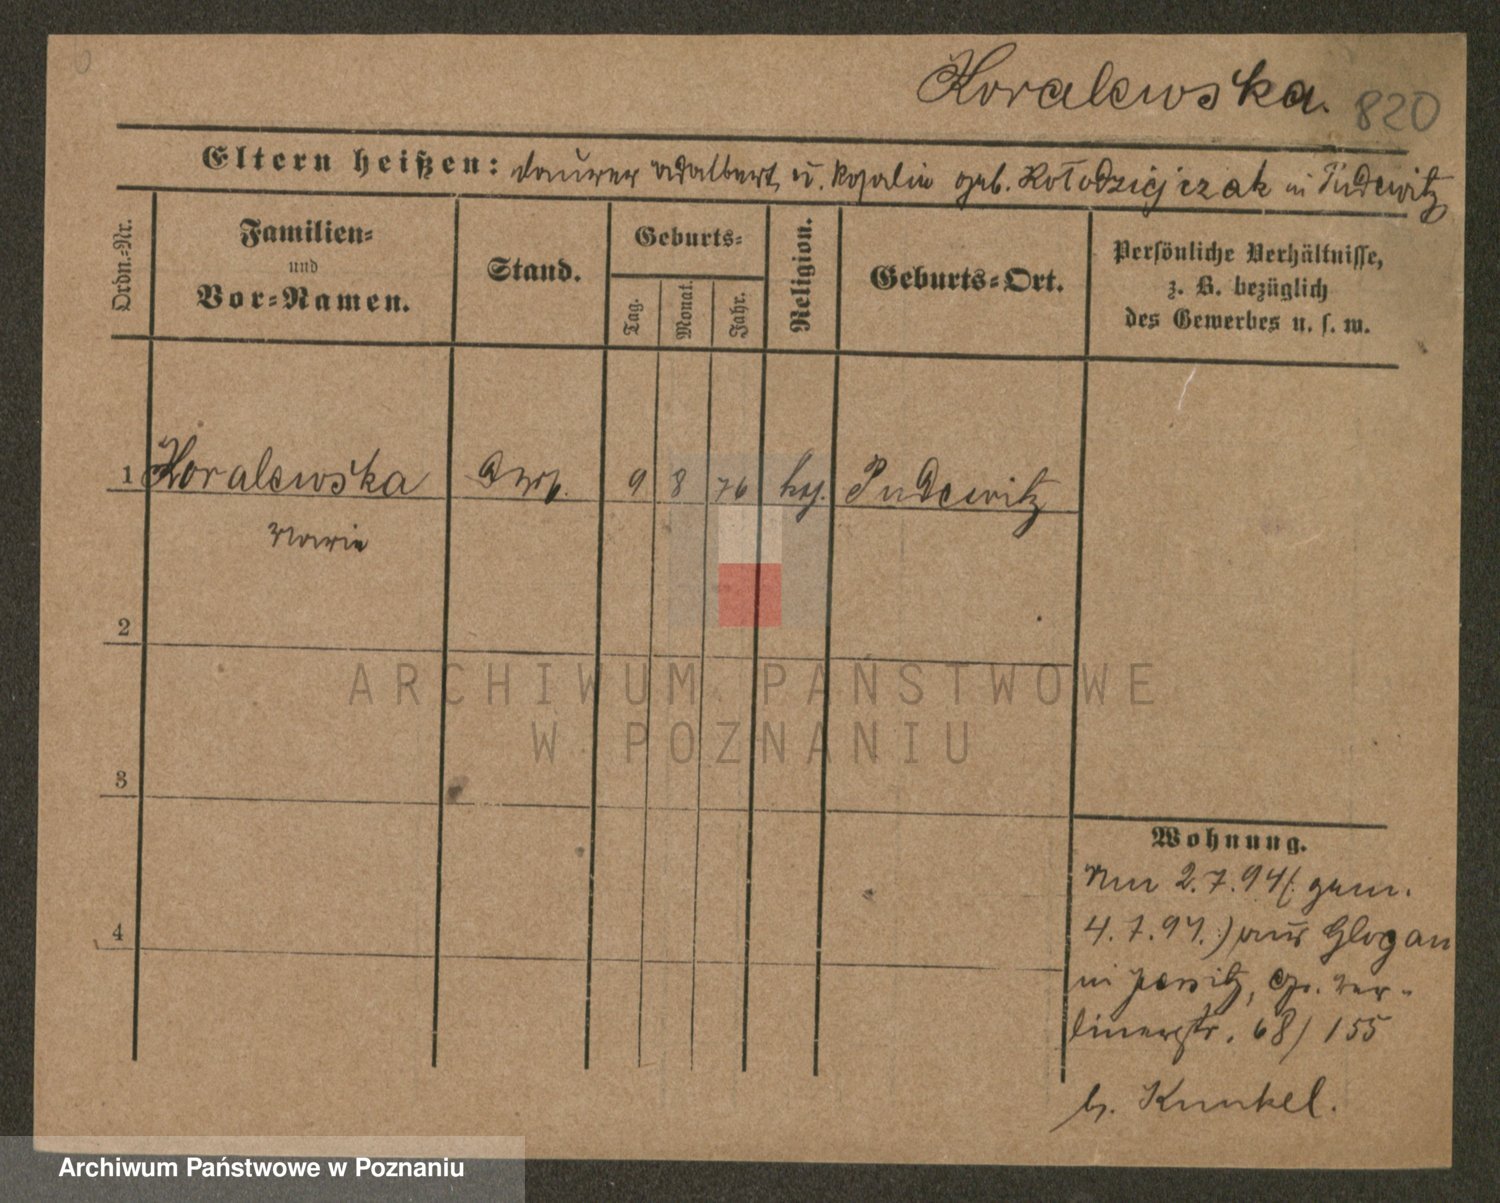 6
Koralewska. 820
Eltern heißen: Maurer Adalbert u. Rosalie geb. Kołodziejczak in Pudewitz
Ordn.-Nr.
Familien-
und
Vor-Namen.
Stand.
Geburts-
Tag.
Monat.
Jahr.
Religion.
Geburts-Ort.
Persönliche Verhältnisse,
z. B. bezüglich
des Gewerbes u. s. w.
1 Koralewska 9 8 76 Pudewitz
Marie
2
3
4
Wohnung.
Am 2.7.94 (: gem.
4.7.94.:) aus Glogau
in Jersitz, Gr. Ber-
linerstr. 68/155
b. Kunkel.
ARCHIWUM PAŃSTWOWE
W POZNANIU
Archiwum Państwowe w Poznaniu